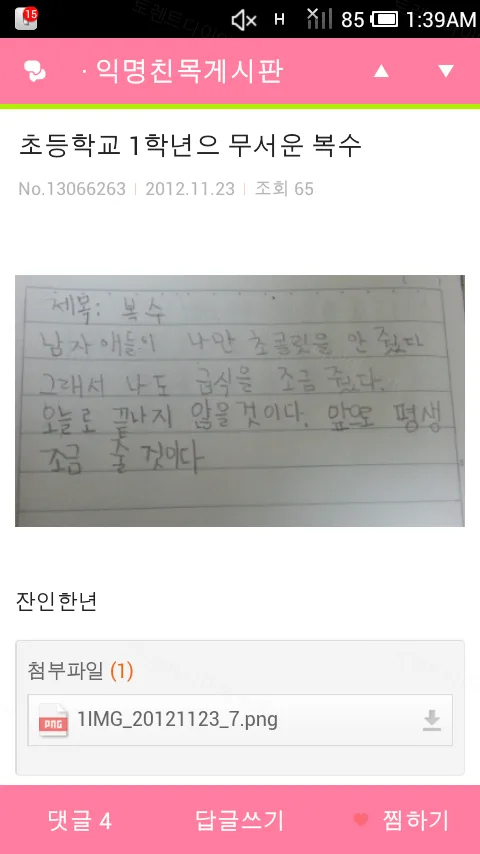 15
H
85
1:39AM
· 익명친목게시판
초등학교 1학년으 무서운 복수
No.13066263 | 2012.11.23 | 조회 65
제목: 복수
남자 애들이 나만 초콜릿을 안 줬다
그래서 나도 급식을 조금 줬다.
오늘로 끝나지 않을것이다. 앞으로 평생
조금 줄 것이다
잔인한년
첨부파일 (1)
PNG
1IMG_20121123_7.png
댓글 4
답글쓰기
찜하기